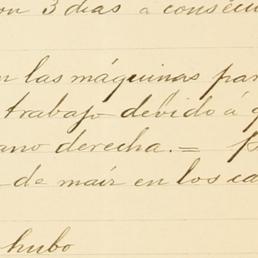 on 3 dias á consecu
n las máquinas par
trabajo devido á q
ano derecha. =
de maír en los ca
hubo